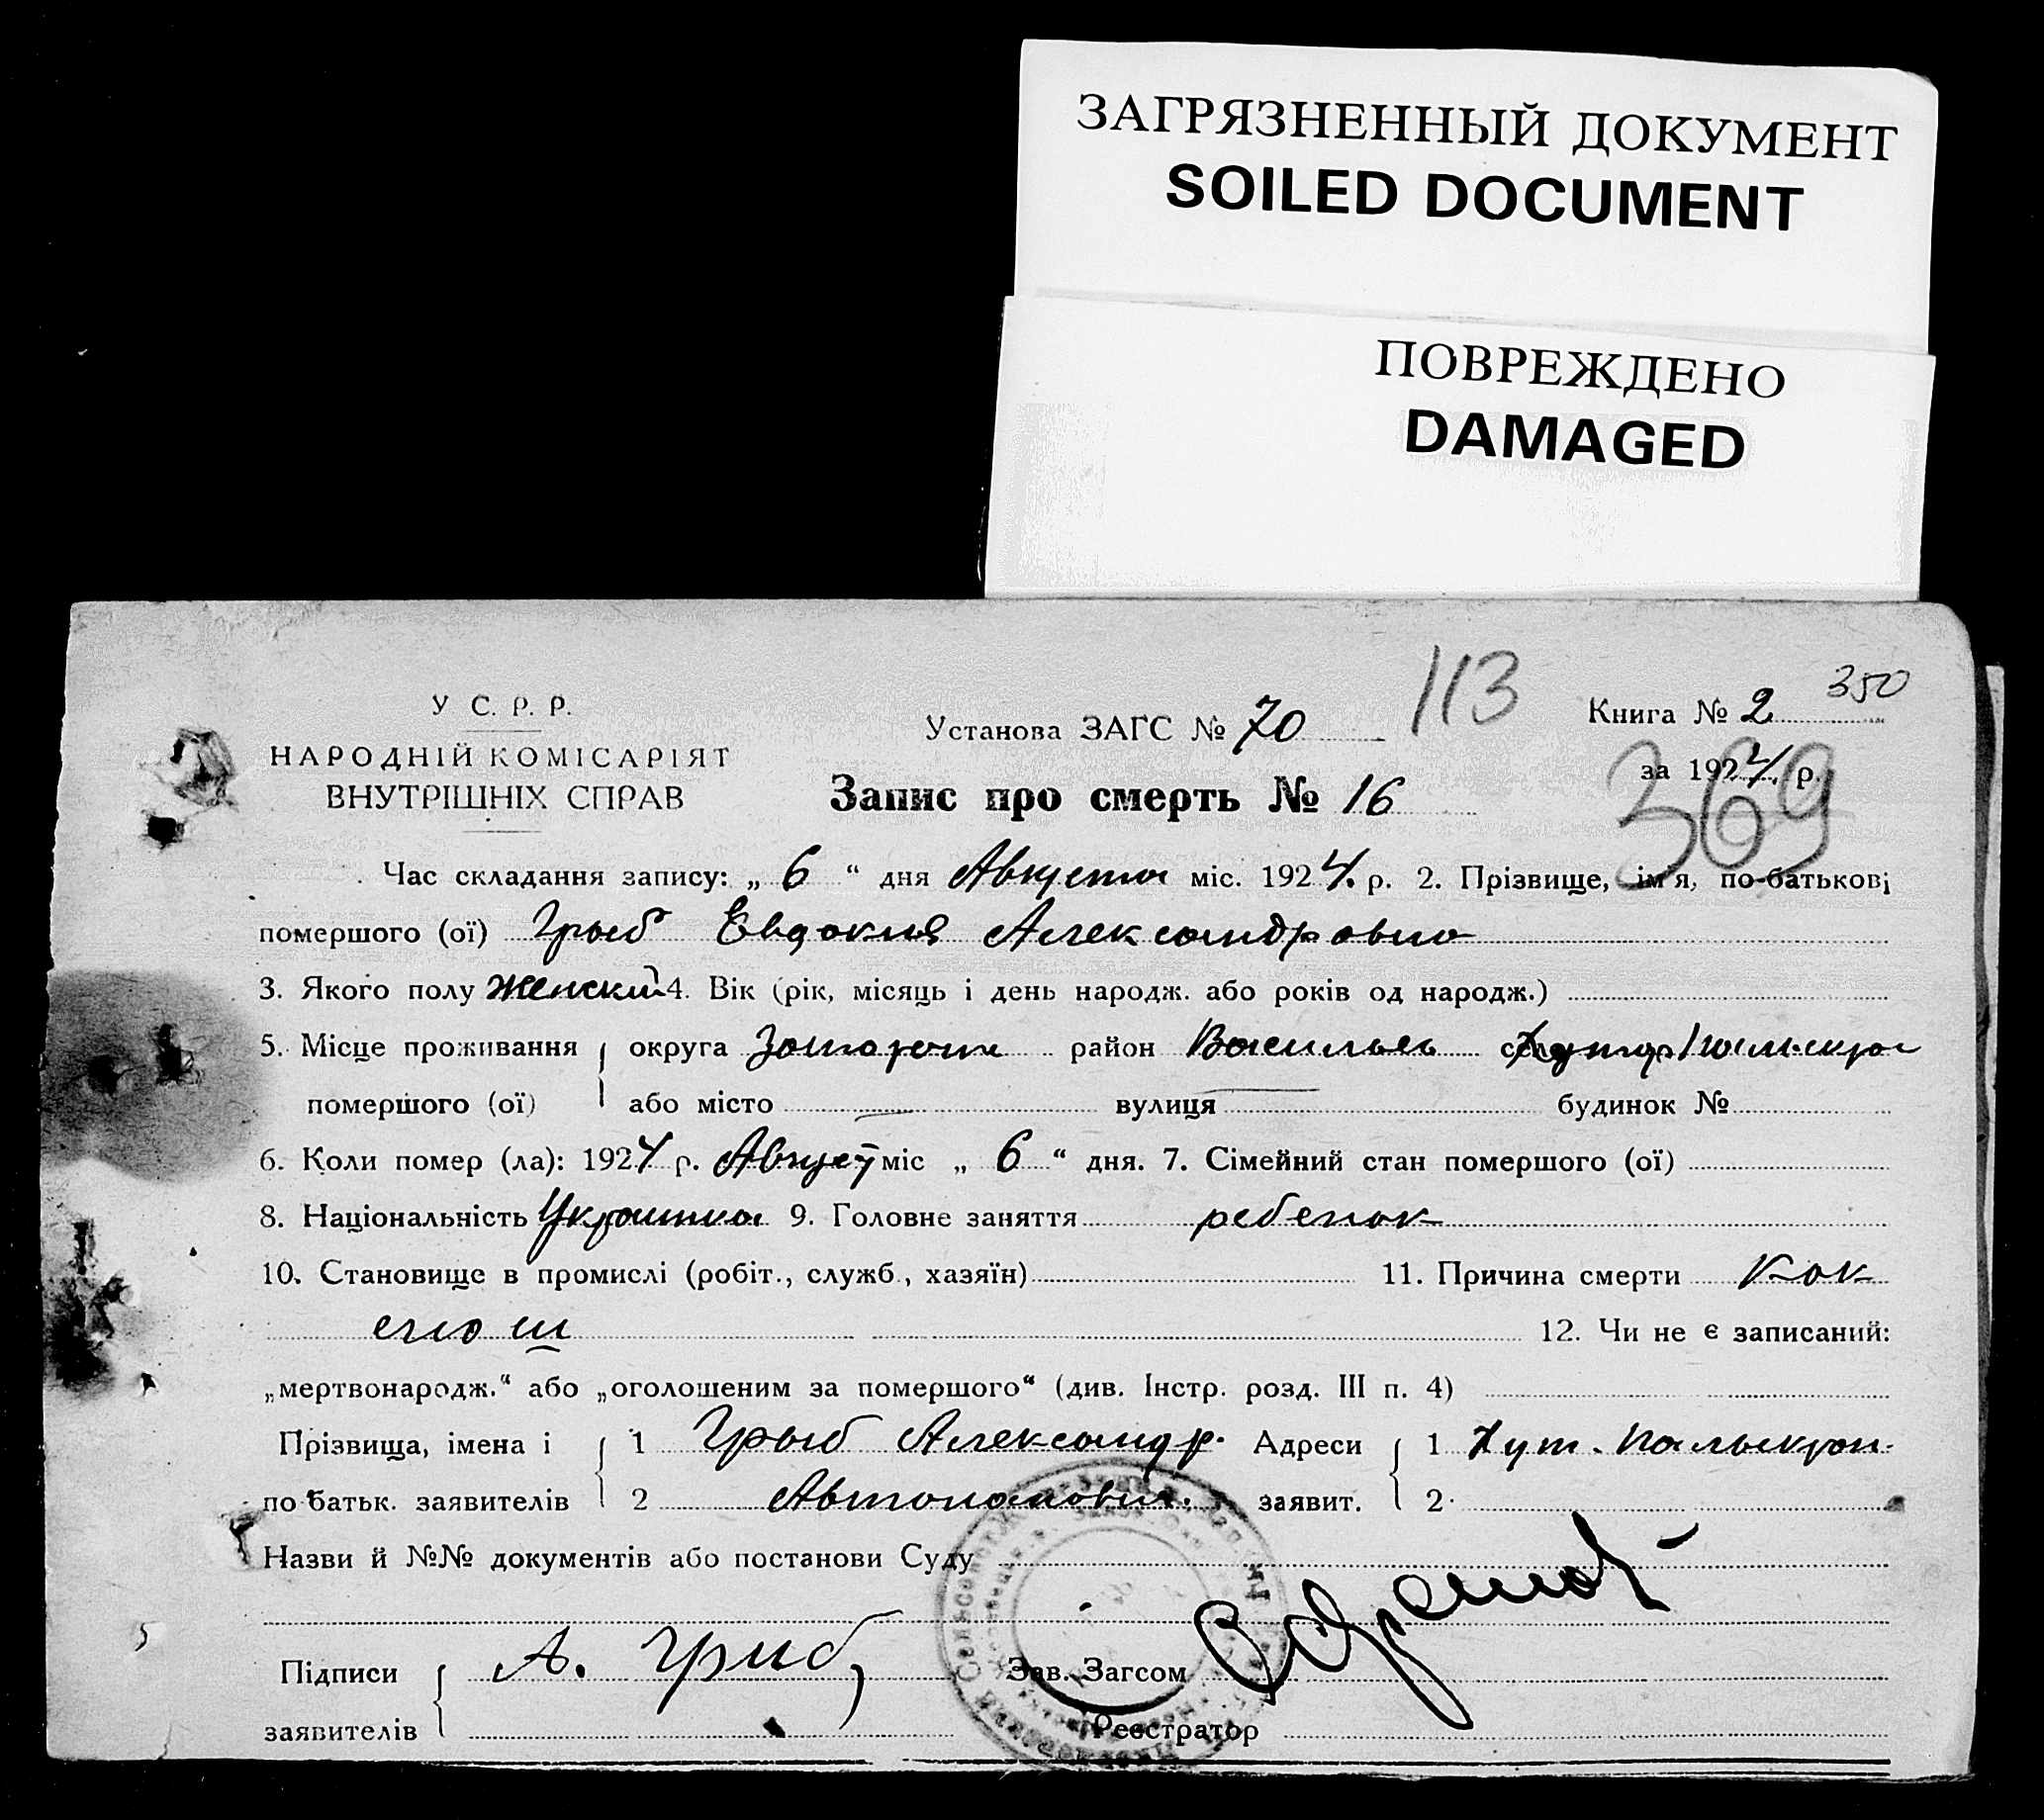 ЗАГРЯЗНЕННЫЙ ДОКУМЕНТ
SOILED DOCUMENT
ПОВРЕЖДЕНО
DAMAGED
113
350
У С. Р. Р.
НАРОДНІЙ КОМІСАРІЯТ
ВНУТРІШНІХ СПРАВ
Установа ЗАГС № 70
Книга № 2
за 1924 р.
369
Запис про смерть № 16
Час складання запису: „ 6 “ дня Августа міс. 1924 р. 2. Прізвище, ім'я, по-батькові
помершого (ої) Грыб Евдокия Александровна
3. Якого полу Женский 4. Вік (рік, місяць і день народж. або років од народж.)
5. Місце проживання округа район Васильев Хутор
помершого (ої) або місто вулиця будинок №
6. Коли помер (ла): 1924 р. Август міс „ 6 “ дня. 7. Сімейний стан помершого (ої)
8. Національність Украинка 9. Головне заняття ребенок
10. Становище в промислі (робіт., служб., хазяїн) 11. Причина смерти Кок
люш 12. Чи не є записаний:
„мертвонародж.“ або „оголошеним за помершого“ (див. Інстр. розд. III п. 4)
Прізвища, імена і 1 Грыб Александр. Адреси 1 Хут.
по батьк. заявителів 2 Автономович. заявит. 2
Назви й №№ документів або постанови Суду
Підписи А. Гриб Зав. Загсом
заявителів Реєстратор